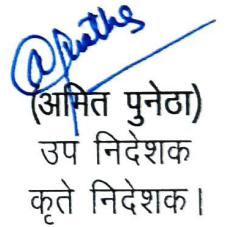 (अमित पुनेठा)
उप निदेशक
कृते निदेशक।